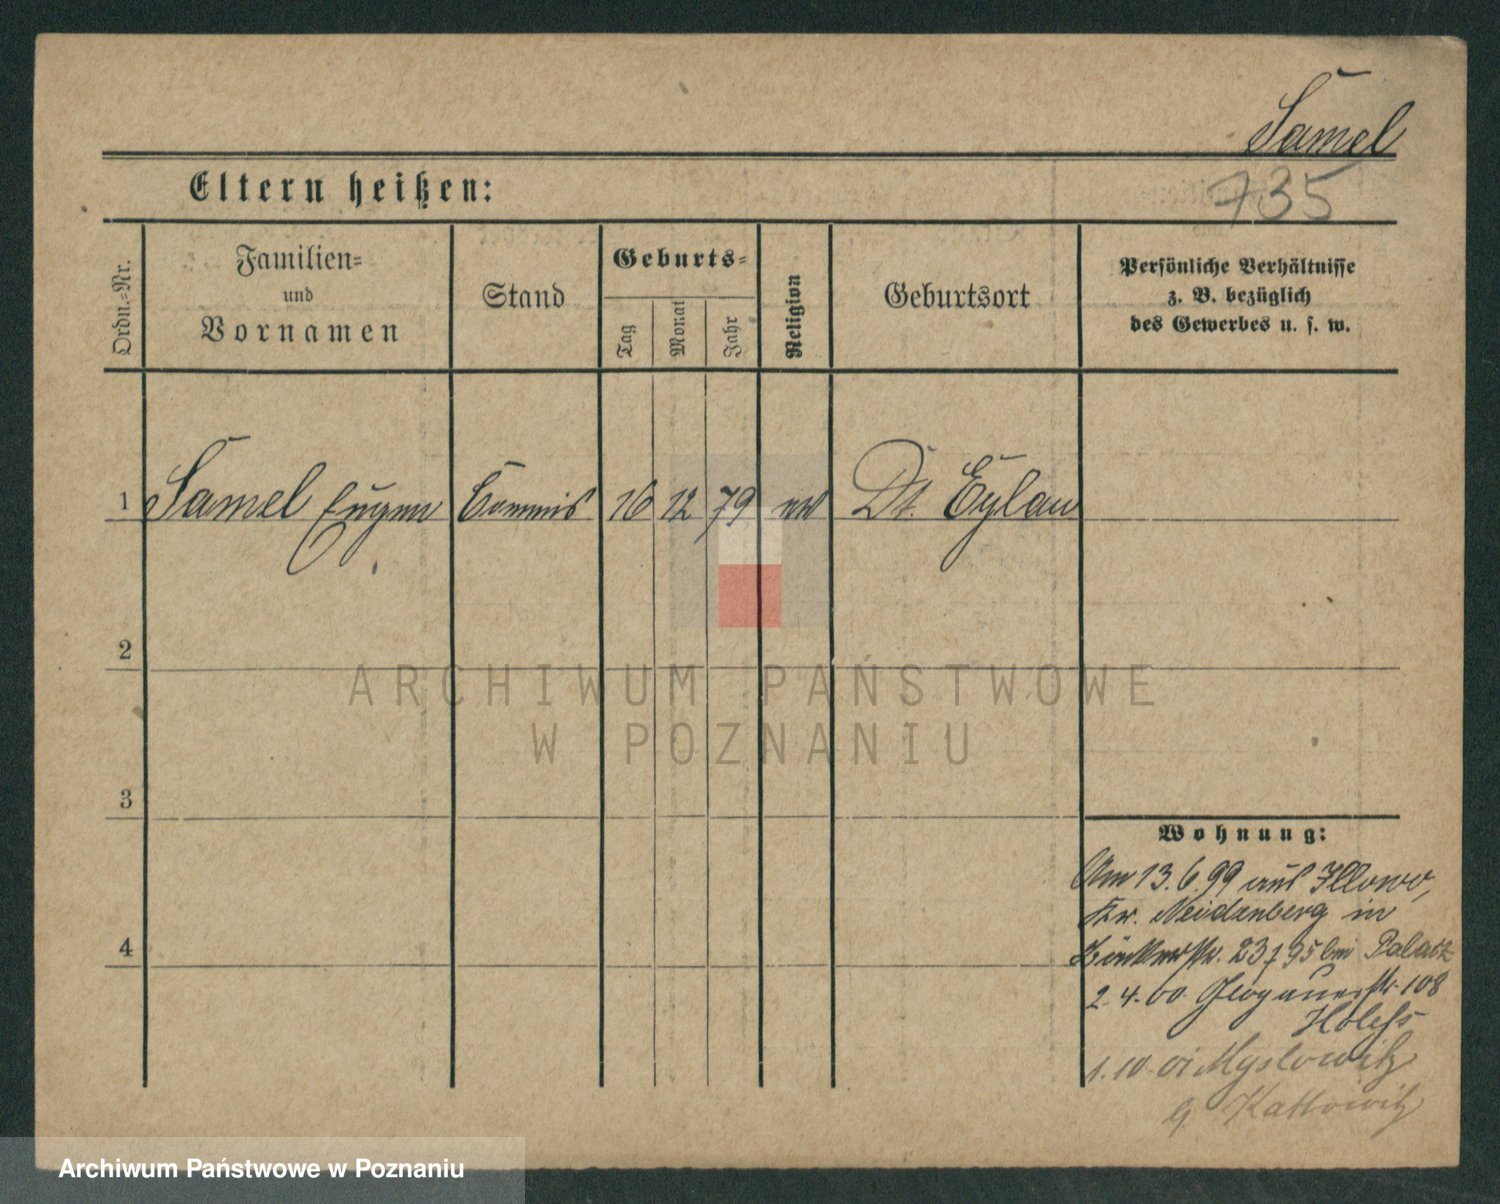 Samel
735
Eltern heißen:
Ordn.=Nr.
Familien=
und
Vornamen
Stand
Geburts=
Tag
Monat
Jahr
Religion
Geburtsort
Persönliche Verhältnisse
z. B. bezüglich
des Gewerbes u. s. w.
1 Samel Eugen Commis 16 12 79 Dt. Eylau
2
3
4
Wohnung:
Am 13.6.99 aus Illowo,
Kr. Neidenberg in
23/95 bei
2.4.00 Glogauerstr. 108
1.10.01 Myslowitz
Kattowitz
ARCHIWUM PAŃSTWOWE
W POZNANIU
Archiwum Państwowe w Poznaniu